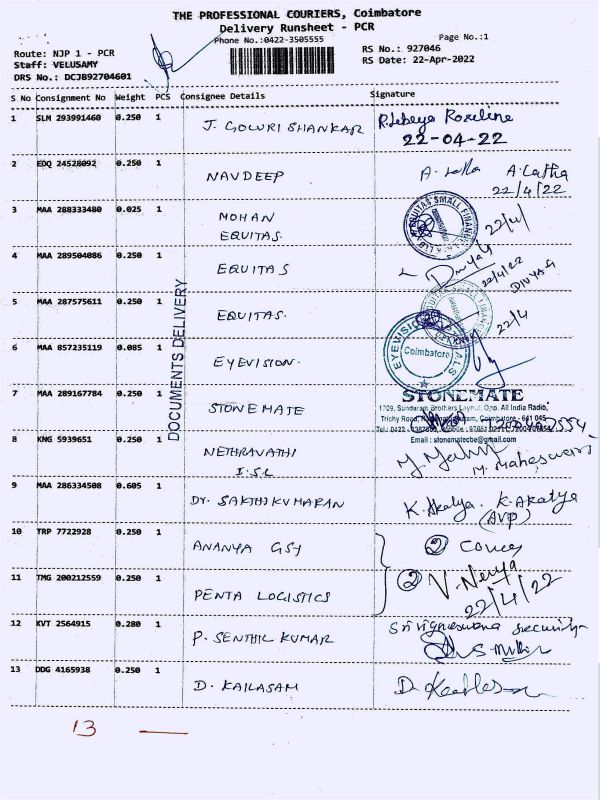 THE PROFESSIONAL COURIERS, Coimbatore
Delivery Runsheet - PCR
Phone No.:0422-3505555
Page No.:1
Route: NJP 1 - PCR
Staff: VELUSAMY
DRS No.: DCJB92704601
RS No.: 927046
RS Date: 22-Apr-2022
S No Consignment No Weight PCS Consignee Details Signature
1 SLM 293991460 0.250 1 J. GOWRI SHANKAR Roseline
22-04-22
2 EDQ 24528092 0.250 1 NAVDEEP A. Latha A. Latha
22/4/22
3 MAA 288333480 0.025 1 MOHAN
EQUITAS. 22/4/
4 MAA 289504086 0.250 1 EQUITAS Divya G
22/4/22
DIVYA G
5 MAA 287575611 0.250 1 EQUITAS. 22/4
6 MAA 857235119 0.085 1 EYEVISION. Coimbatore
DOCUMENTS DELIVERY
7 MAA 289167784 0.250 1 STONEMATE STONEMATE
1709, Sundaram Brothers Layout, Opp. All India Radio,
Trichy Road, Coimbatore - 641 045
Email : stonematecbe@gmail.com
8 KNG 5939651 0.250 1 NETHRAVATHI
I.S.L M. Maheswari
9 MAA 286334508 0.605 1 Dr. SAKTHIKUMARAN K. Akalya. K. Akalya
(AVP)
10 TRP 7722928 0.250 1 ANANYA GSY 2
11 TMG 200212559 0.250 1 PENTA LOGISTICS 2 V. Nenya
22/4/22
12 KVT 2564915 0.280 1 P. SENTHIL KUMAR Sri vigneswara security
13 DDG 4165938 0.250 1 D. KAILASAM D.
13 —